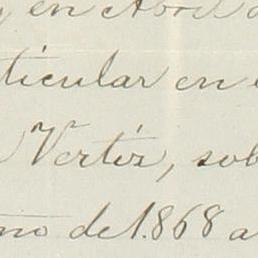 en Abril
ticular en
Vertiz, sob
no de 1.868 a